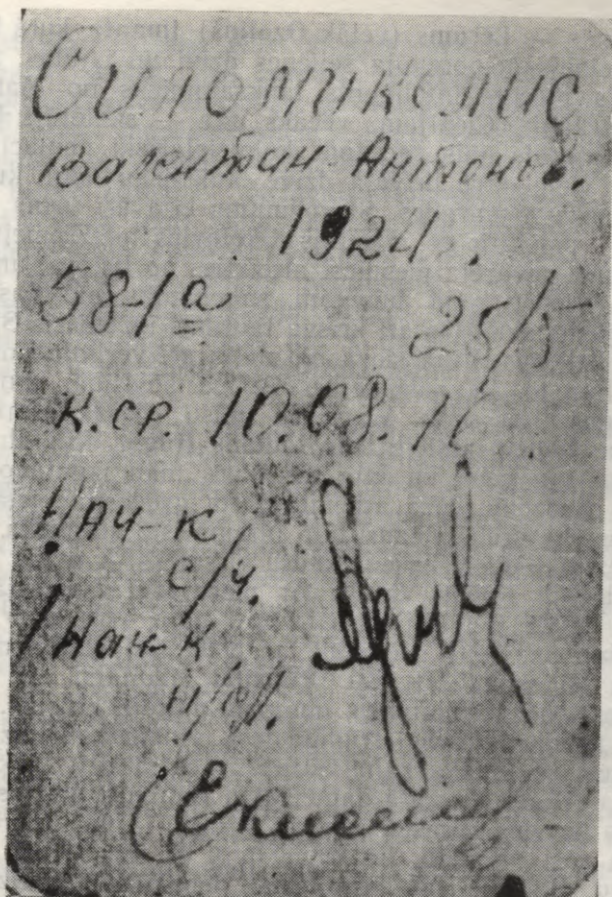 Силомикелис
Валентин Антонов.
1924.
58-1а 25/5
К.ср. 10.08.76
Нач-к
с/ч.
Нач-к